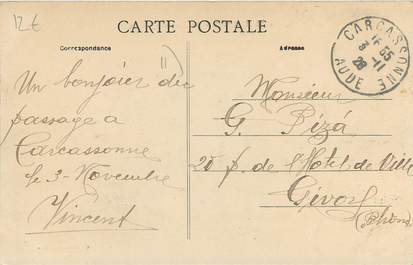 12€
CARTE POSTALE
Correspondance
Adresse
CARCASSONNE
AUDE
Un bonjour de
passage a
Carcassonne
le 3 Novembre
Vincent
Monsieur
G. Pizá
20 p. de l'Hôtel de Ville
Givors
(Rhône)